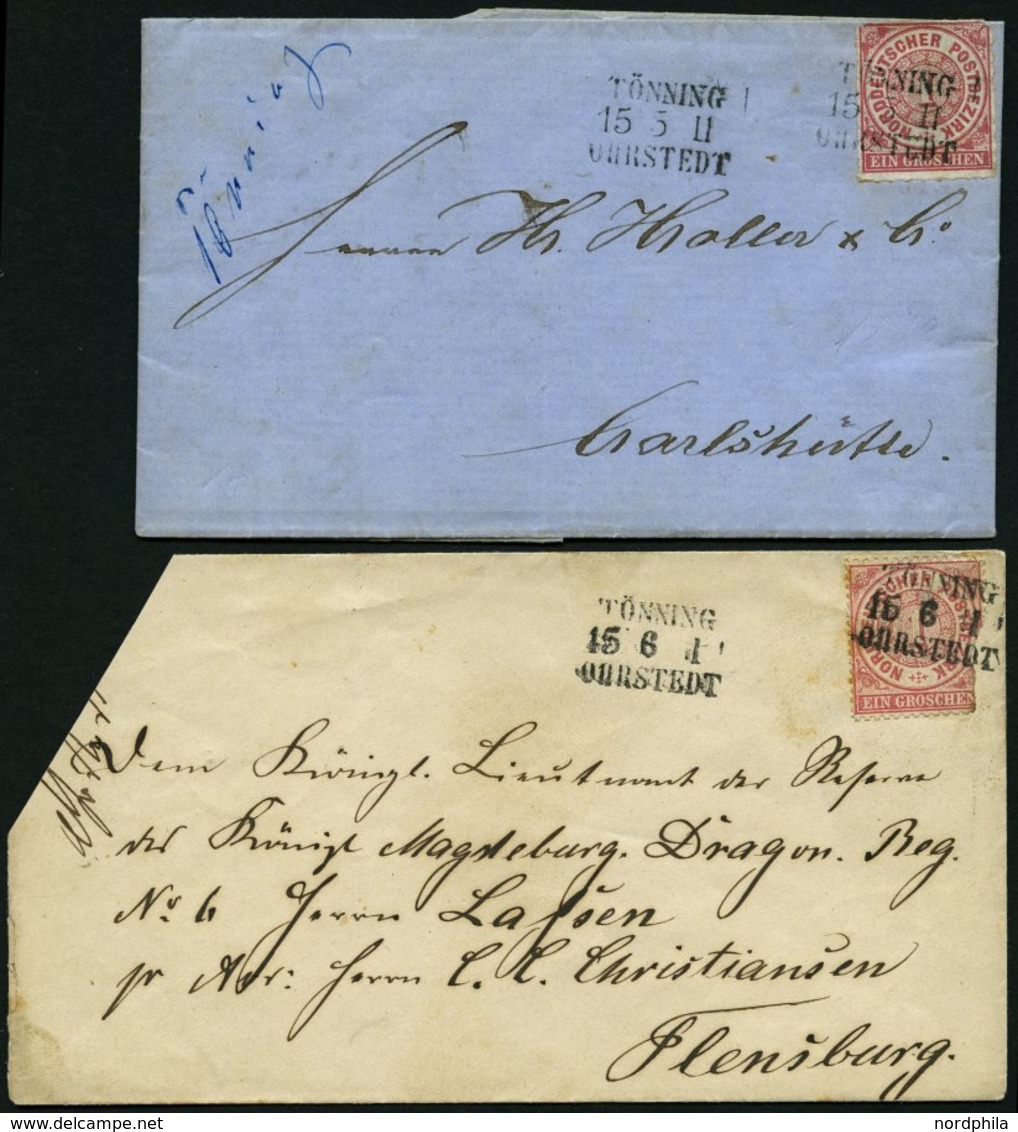 Tönning
TÖNNING
15 5 II
OHRSTEDT
TÖNNING
15 5 II
OHRSTEDT
NORDDEUTSCHER POSTBEZIRK
EIN GROSCHEN
Herrn Th. Holler & Co.
Carlshütte.
TÖNNING
15 6 I
OHRSTEDT
TÖNNING
15 6 I
OHRSTEDT
NORDDEUTSCHER POSTBEZIRK
EIN GROSCHEN
Dem Königl. Lieutnant der Reserve
des Königl Magdeburg. Dragon. Reg.
No 6 Herrn Lassen
pr Adr: Herrn C. C. Christiansen
Flensburg.
www.delcampe.net
nordphila